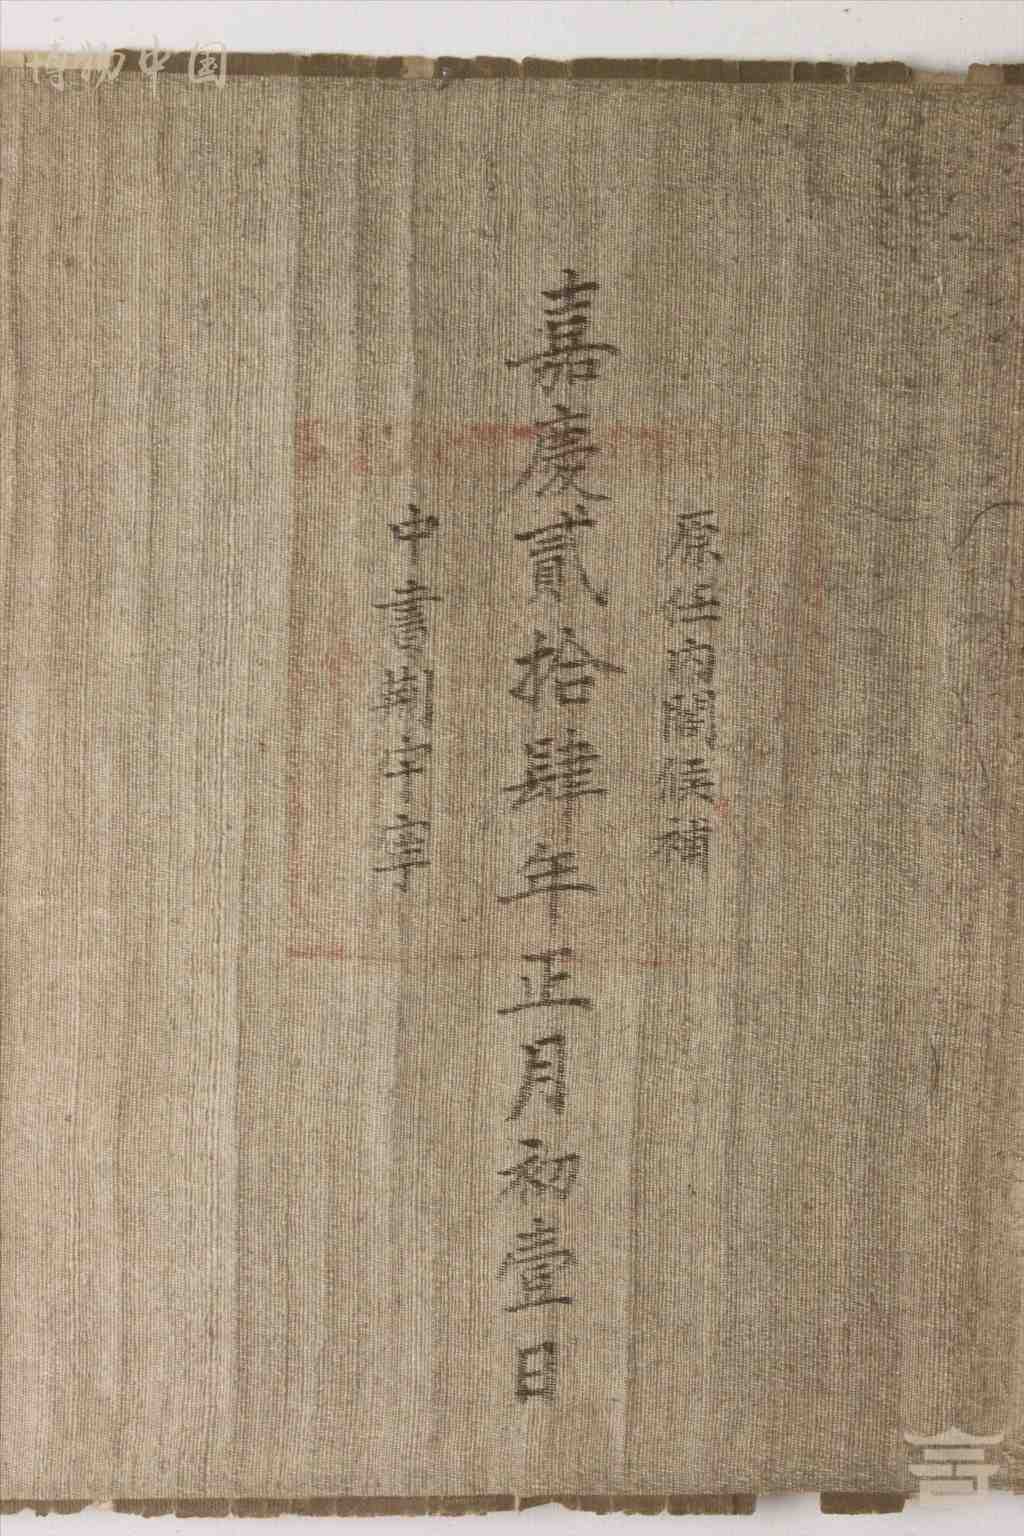 原任內閣候補
嘉慶貳拾肆年正月初壹日
中書蔔宇寧
博物中国